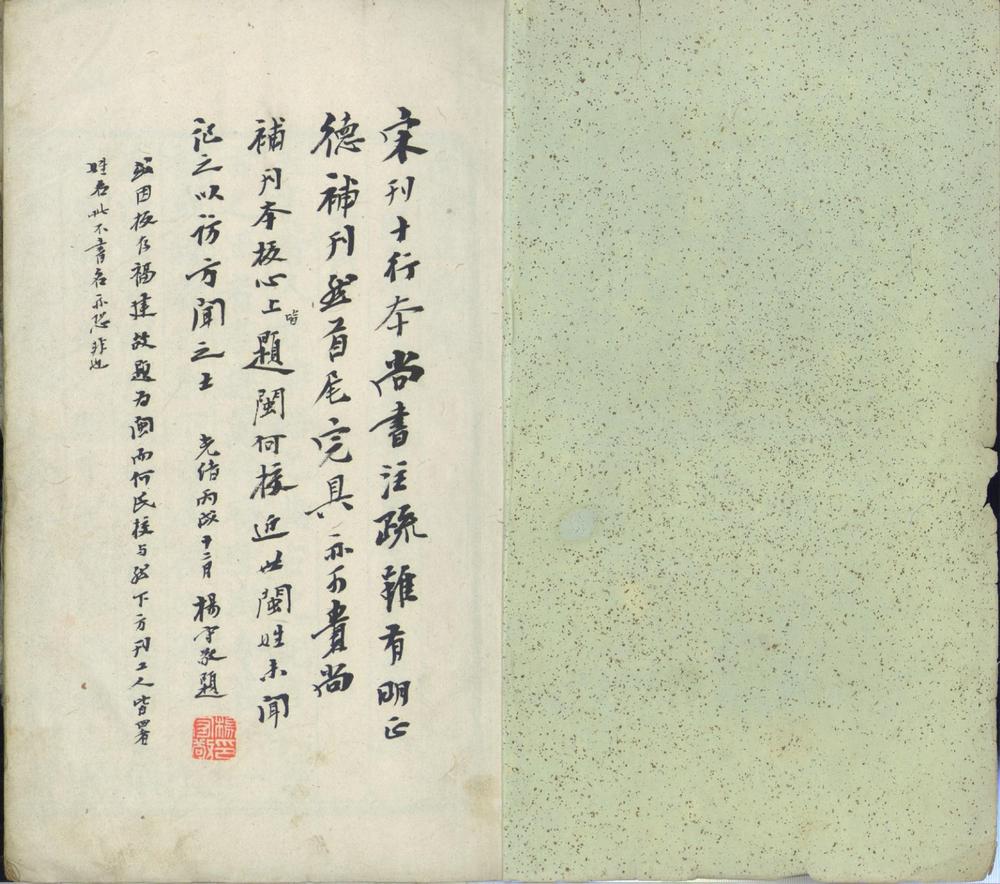 宋刊十行本尚書注疏雖有明正
德補刊然首尾完具亦可貴尚
補刊本板心上皆題閩何校近世閩姓未聞
記之以訪方聞之士　光緒丙戌十二月　楊守敬題
楊守敬印
或因板在福建故題為閩而何氏校与然下方刊工人皆署
姓名此不書名亦恐非也